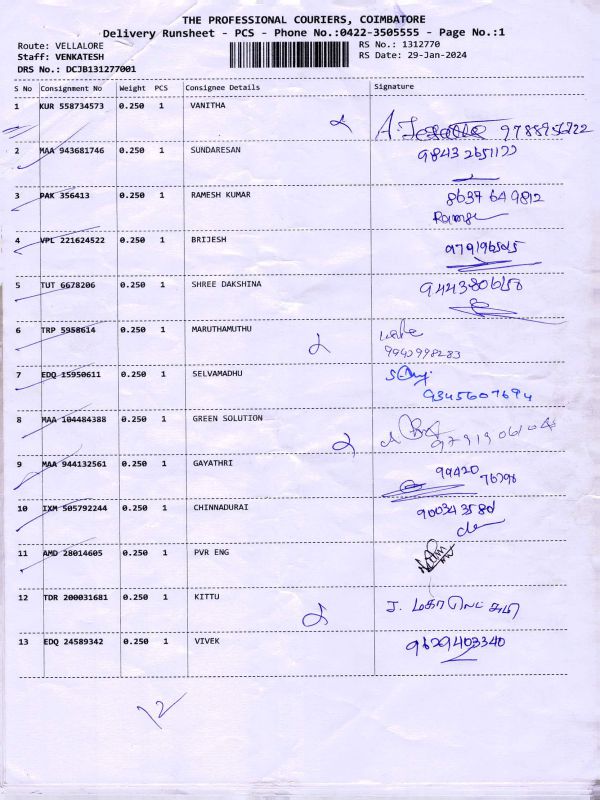 THE PROFESSIONAL COURIERS, COIMBATORE
Delivery Runsheet - PCS - Phone No.:0422-3505555 - Page No.:1
Route: VELLALORE RS No.: 1312770
Staff: VENKATESH RS Date: 29-Jan-2024
DRS No.: DCJB131277001
S No Consignment No Weight PCS Consignee Details Signature
1 KUR 558734573 0.250 1 VANITHA
2 MAA 943681746 0.250 1 SUNDARESAN
3 PAK 356413 0.250 1 RAMESH KUMAR 8637649812
4 VPL 221624522 0.250 1 BRIJESH
5 TUT 6678206 0.250 1 SHREE DAKSHINA
6 TRP 5958614 0.250 1 MARUTHAMUTHU
7 EDQ 15950611 0.250 1 SELVAMADHU
9345607694
8 MAA 104484388 0.250 1 GREEN SOLUTION
9 MAA 944132561 0.250 1 GAYATHRI 99420
10 IXM 505792244 0.250 1 CHINNADURAI
11 AMD 28014605 0.250 1 PVR ENG
12 TDR 200031681 0.250 1 KITTU
13 EDQ 24589342 0.250 1 VIVEK 9629403340
12